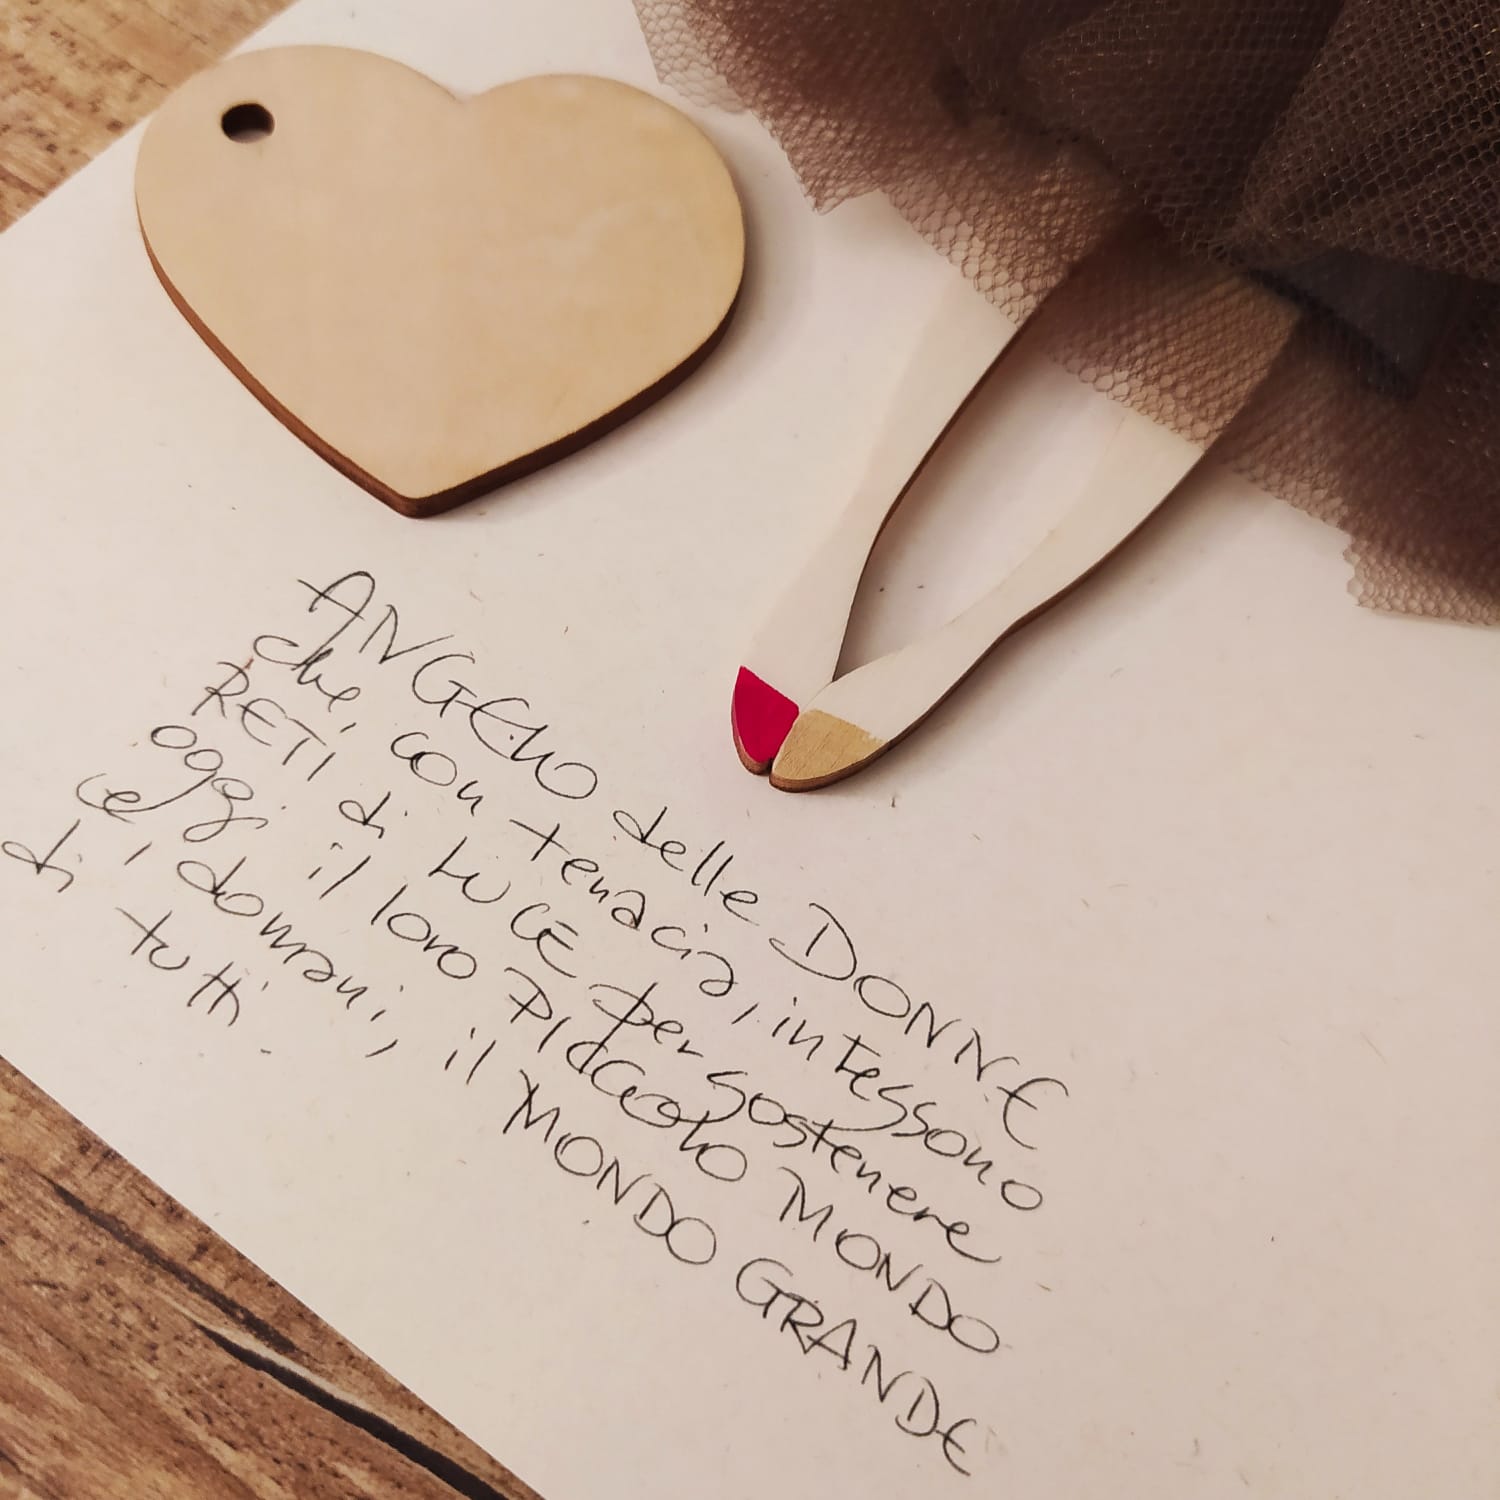 ANGELO delle DONNE
che, con tenacia, intessono
RETI di LUCE per sostenere
oggi il loro PICCOLO MONDO
e, domani, il MONDO GRANDE
di tutti.